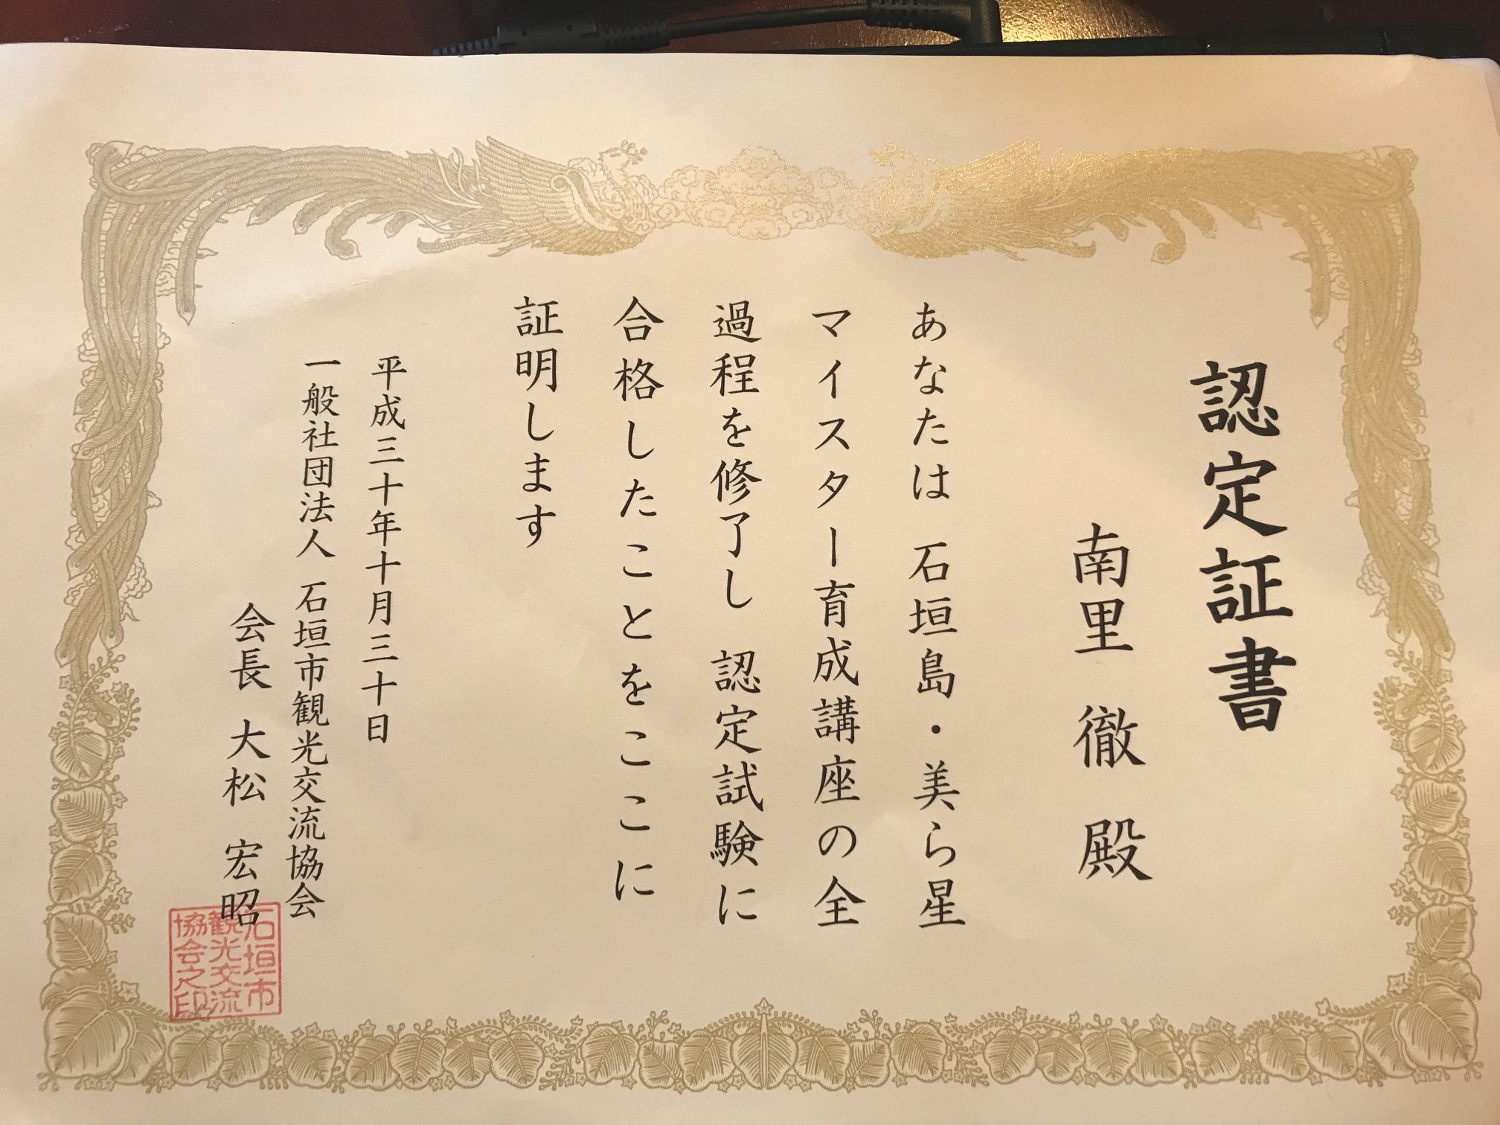 認定証書
南里 徹 殿
あなたは 石垣島・美ら星
マイスター育成講座の全
過程を修了し 認定試験に
合格したことをここに
証明します
平成三十年十月三十日
一般社団法人 石垣市観光交流協会
会長 大松 宏昭
石垣市
観光交流
協会之印